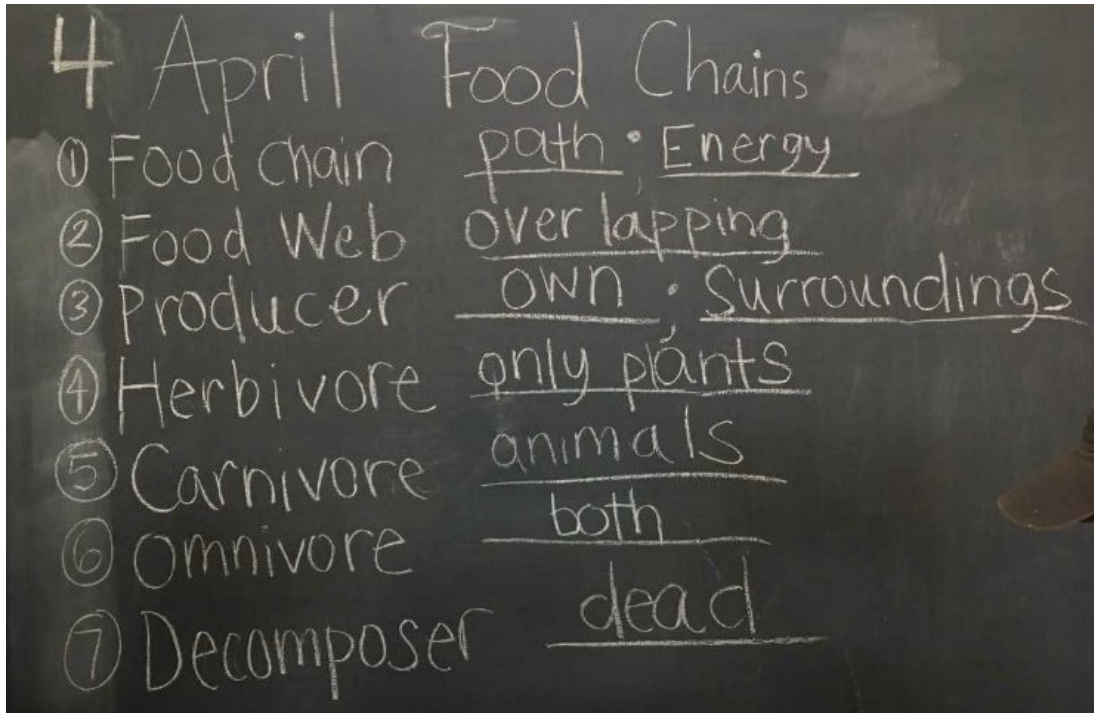 4 April Food Chains
① Food chain path ; Energy
② Food Web overlapping
③ Producer own ; Surroundings
④ Herbivore only plants
⑤ Carnivore animals
⑥ Omnivore both
⑦ Decomposer dead